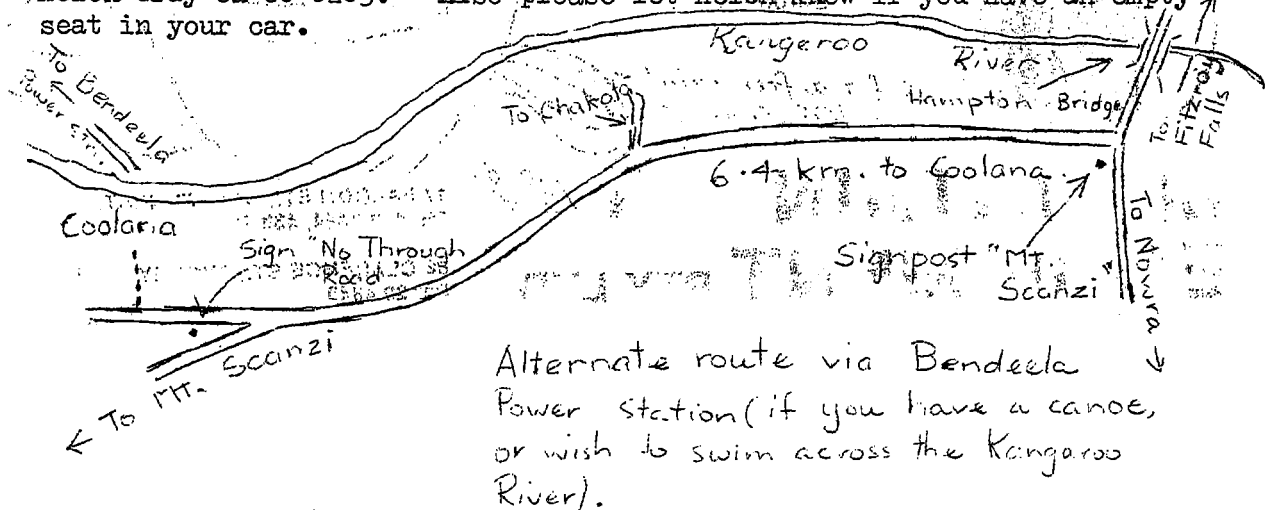 seat in your car.
Kangeroo
River
To Bendeela
Power Stn.
To Chakola
Hampton Bridge
To Fitzroy
Falls
6.4 km. to Coolana
Coolana
Sign "No Through
Road"
Signpost "Mt.
Scanzi"
To Nowra
To Mt. Scanzi
Alternate route via Bendeela
Power Station (if you have a canoe,
or wish to swim across the Kangaroo
River).